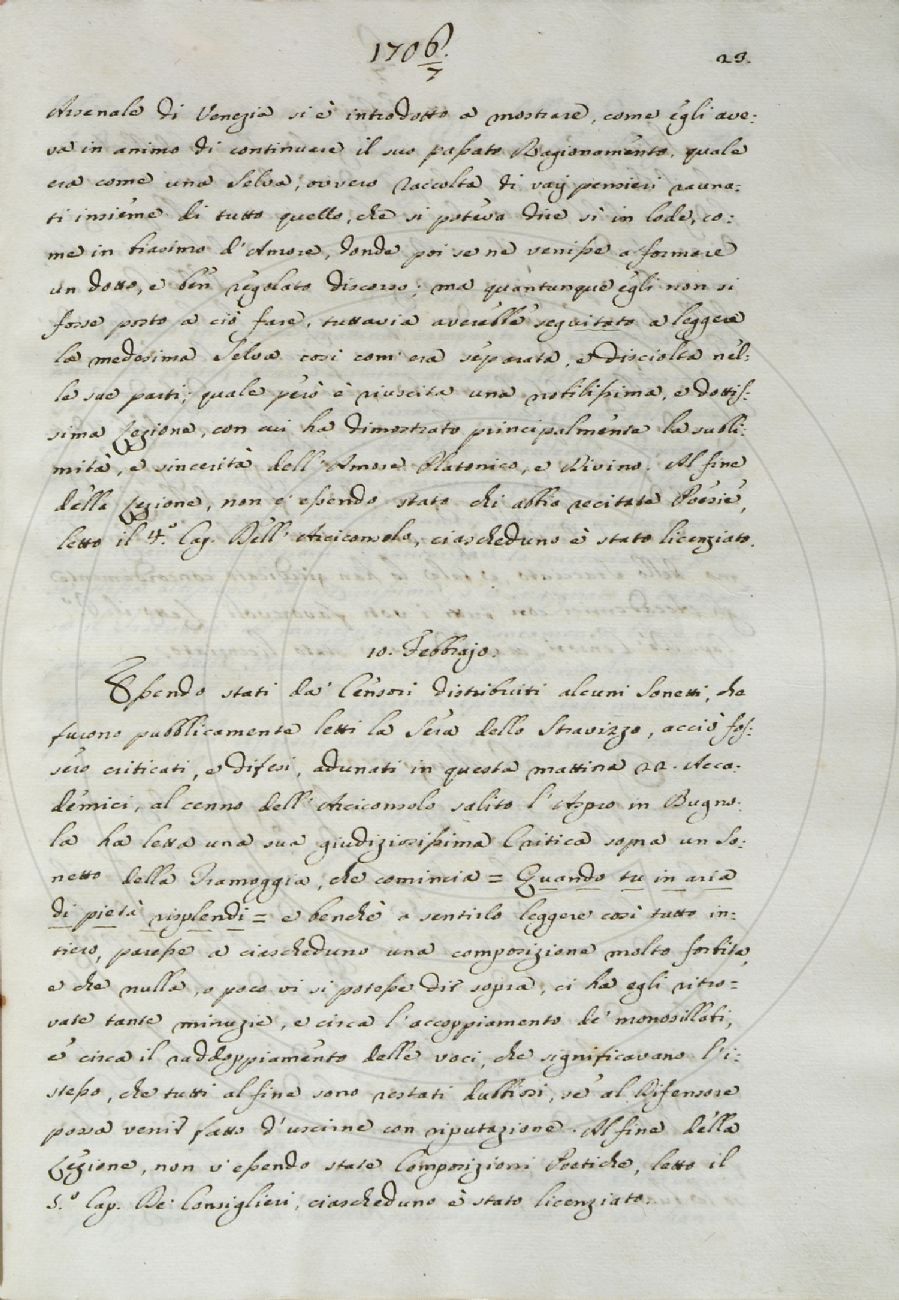 1706/7. 23.
Arsenale di Venezia si è introdotto a mostrare, come egli ave:
va in animo di continuare il suo passato Ragionamento, quale
era come una Selva, ovvero raccolta di varj pensieri rauna:
ti insieme di tutto quello, che si poteva dire sì in lode, co:
me in biasimo d'Amore, donde poi se ne venisse a formare
un dotto, e ben regolato discorso; ma quantunque egli non si
fosse posto a ciò fare, tuttavia averebbe seguitato a leggere
la medesima Selva così com'era separata, e disciolta nel:
le sue parti; quale però è riuscita una nobilissima, e dottis:
sima Lezione, con cui ha dimostrato principalmente la subli:
mità, e sincerità dell'Amore Platonico, e Divino. Al fine
della Lezione, non v'essendo stato chi abbia recitate Poesie,
letto il 4.º Cap. Dell'Arciconsolo, ciascheduno è stato licenziato.
10. Febbrajo.
Essendo stati da' Censori distribuiti alcuni Sonetti, che
furono pubblicamente letti la Sera dello Stravizzo, acciò fos:
sero criticati, e difesi, adunati in questa mattina 22. Acca:
demici, al cenno dell'Arciconsolo salito l'Aspro in Bugno:
la ha letta una sua giudiziosissima Critica sopra un So:
netto della Tramoggia, che comincia = Quando tu in aria
di pietà risplendi = e benchè a sentirlo leggere così tutto in:
tiero, paresse a ciascheduno una composizione molto forbita,
e che nulla, o poco vi si potesse dir sopra, ci ha egli ritro=
vate tante minuzie, e circa l'accoppiamento de' monosillabi,
e circa il raddoppiamento delle voci, che significavano l'i:
stesso, che tutti al fine sono restati dubbiosi, se al Difensore
possa venir fatto d'uscirne con riputazione. Al fine della
Lezione, non v'essendo state Composizioni Poetiche, letto il
5.º Cap. De' Consiglieri, ciascheduno è stato licenziato.